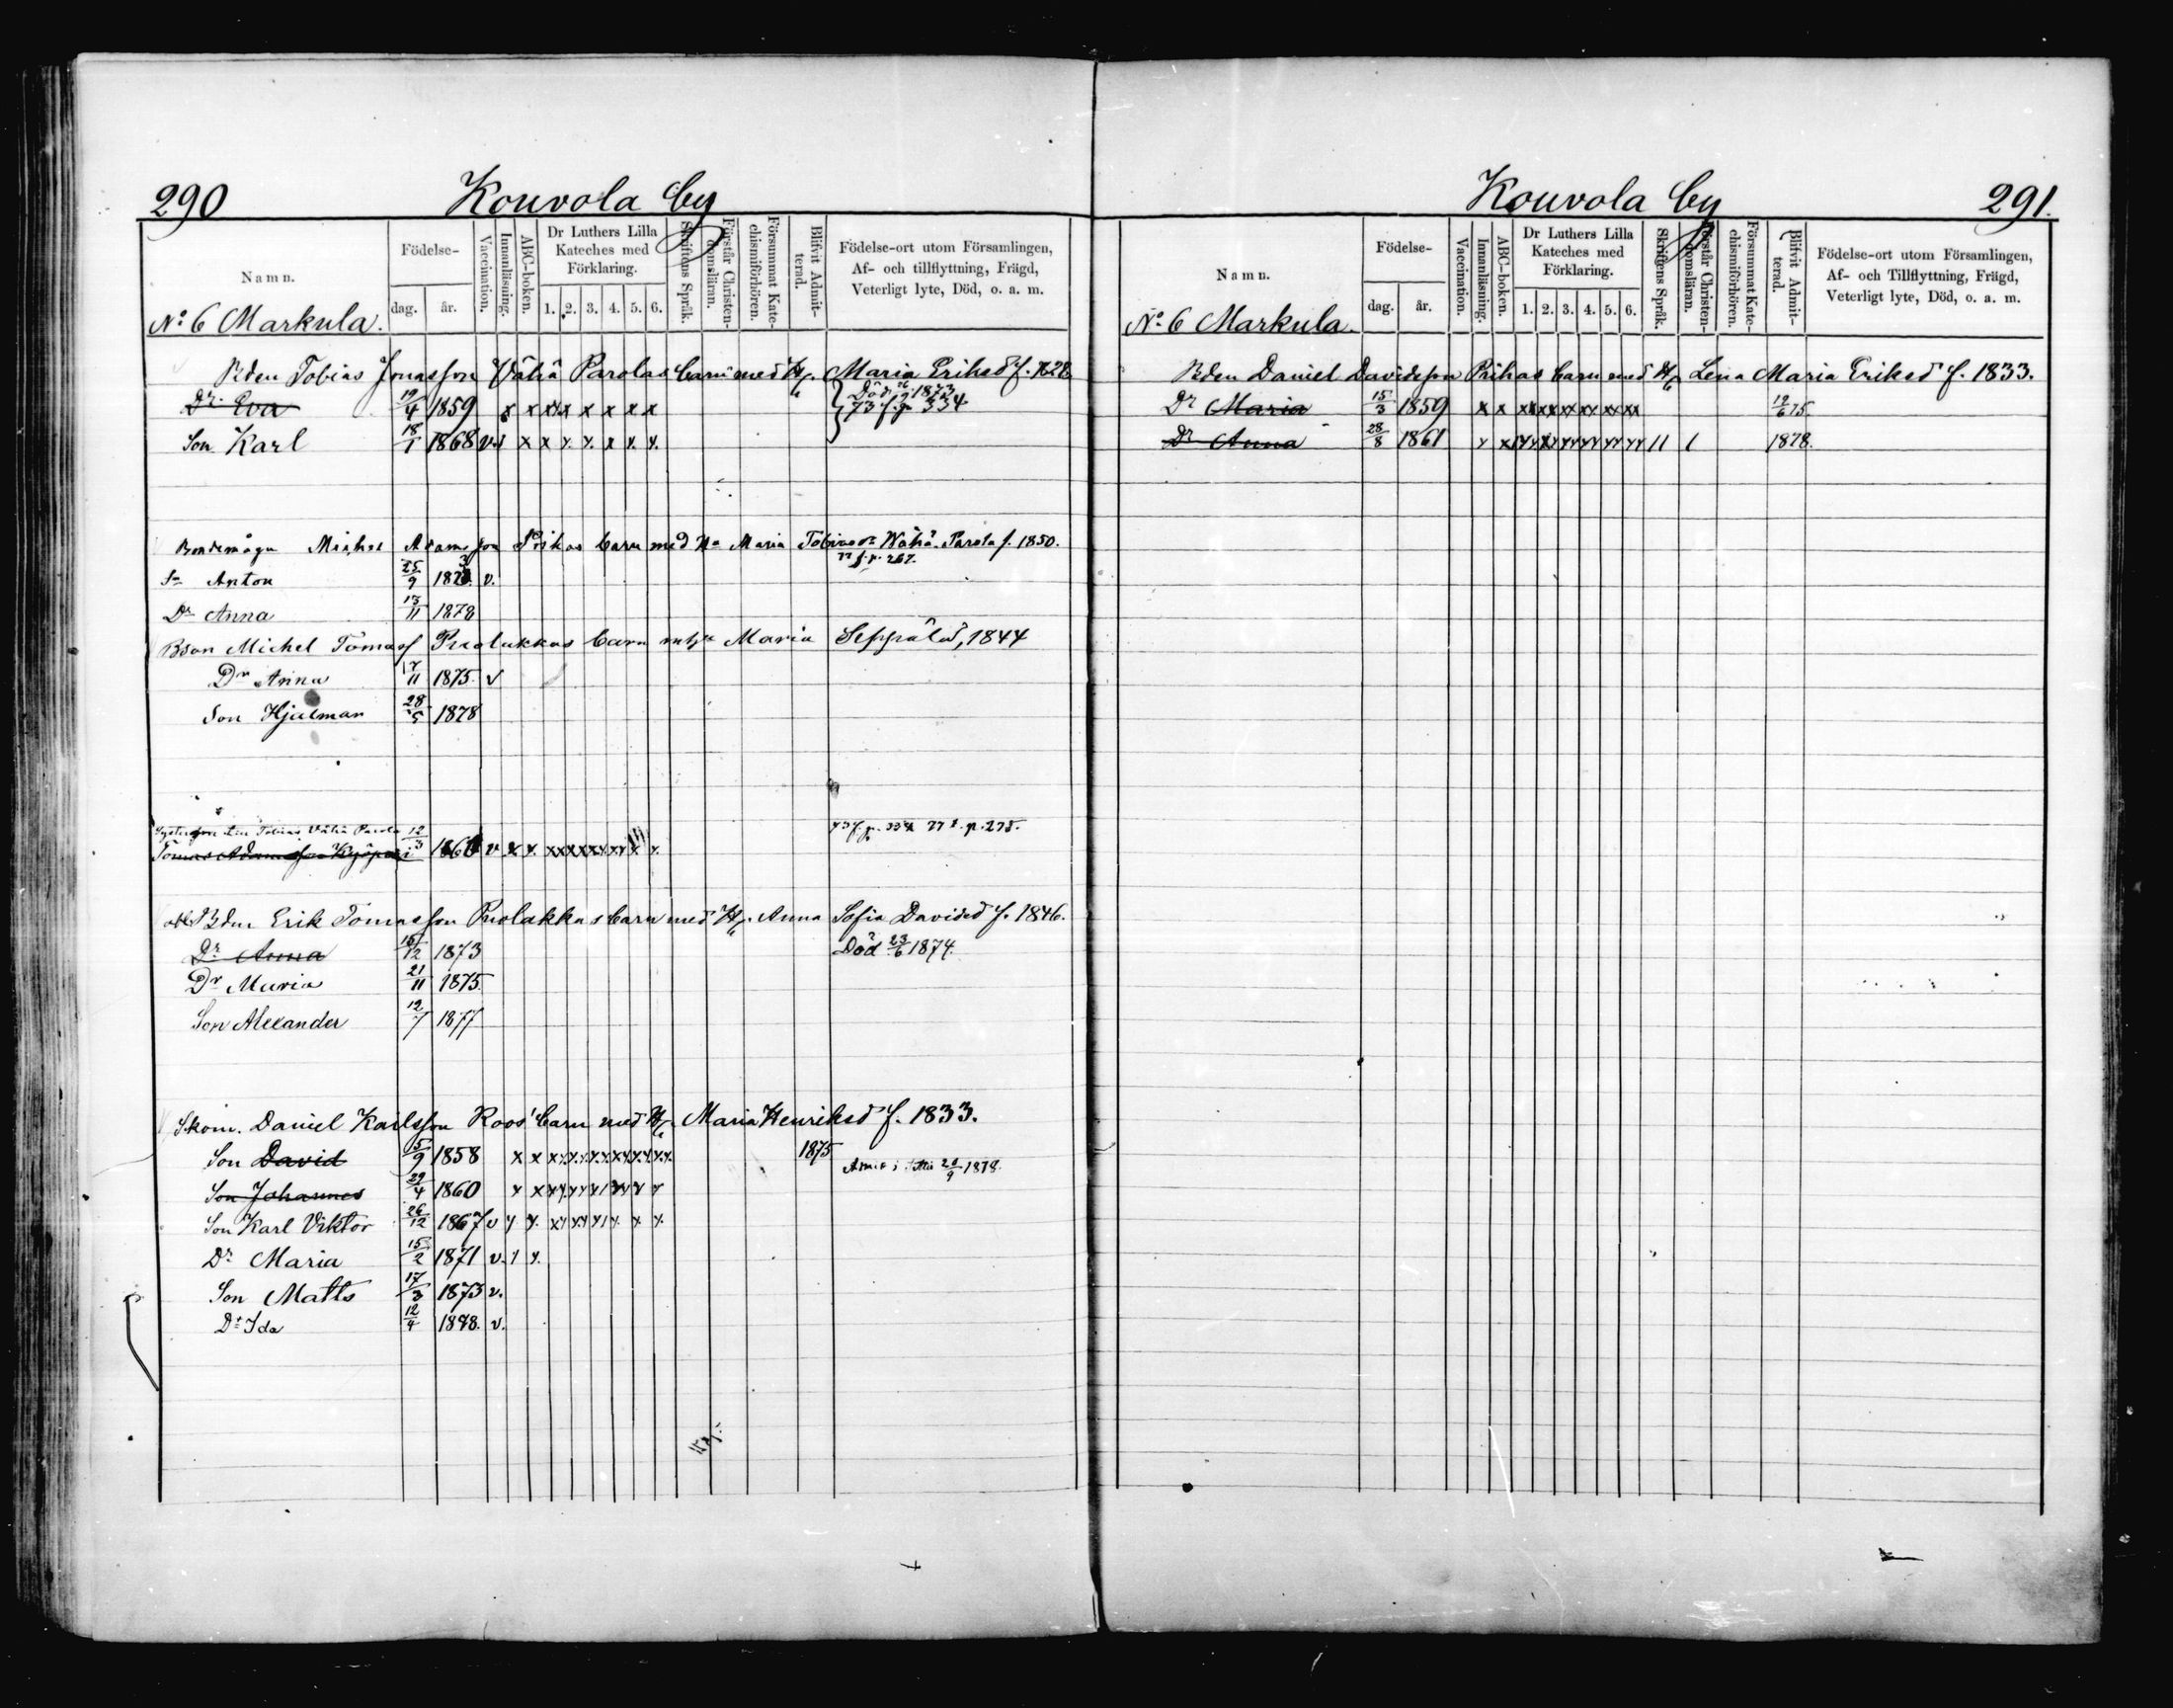 290 Kouvola by
Namn. Födelse- dag. år. Vaccination. Innanläsning. ABC-boken. Dr Luthers Lilla Kateches med Förklaring. 1. 2. 3. 4. 5. 6. Skriftens Språk. Förstår Christendomsläran. Försummat Katechismiförhören. Blifvit Admitterad. Födelse-ort utom Församlingen, Af- och tillflyttning, Frägd, Veterligt lyte, Död, o. a. m.
No 6 Markula.
Bden Tobias Jonasson Vähä Parolas barn med H. Maria Eriksd f. 1828
Dr Eva 19/4 1859 x x x x x x x x x Död 1873
73 f. p. 334.
Son Karl 18/1 1868 v. x x x y. y. x y. y.
Bondemågen Michel Adamsson Prikas barn med Ha Maria Tobiasdr Wähä-Parola f. 1850.
f. p. 267.
Sn Anton 25/9 1873 v.
Dr Anna 13/11 1878
Bson Michel Tomass Puolakkas barn m Hu Maria Seppälä, 1844
Dr Anna 17/11 1875 v
Son Hjalmar 28/5 1878
Systerson Tobias Vähä Parola
Tomas Adamsson 12/3 1860 v x y. xx xx xx xx x y. 73 f. p. 334 77 f. p. 275.
Bden Erik Tomasson Puolakkas barn med H. Anna Sofia Davidsd f. 1846.
Dr Anna 15/12 1873 Död 23/6 1874.
Dr Maria 21/11 1875.
Son Alexander 12/7 1877
Skom. Daniel Karlsson Roos' barn med H. Maria Henriksd f. 1833.
Son David 5/9 1858 x x xy. y.y. y.x xy. y.y. y.y. 1875 20/9 1878.
Son Johannes 29/4 1860 y x xy yy yy y
Son Karl Viktor 26/12 1867 v y y. xy xy y y. x y.
Dr Maria 15/2 1871 v. 1 y.
Son Matts 17/3 1873 v.
Dr Ida 12/4 1878. v.
Kouvola by 291.
Namn. Födelse- dag. år. Vaccination. Innanläsning. ABC-boken. Dr Luthers Lilla Kateches med Förklaring. 1. 2. 3. 4. 5. 6. Skriftens Språk. Förstår Christendomsläran. Försummat Katechismiförhören. Blifvit Admitterad. Födelse-ort utom Församlingen, Af- och Tillflyttning, Frägd, Veterligt lyte, Död, o. a. m.
No 6 Markula.
Bden Daniel Davidsson Prikas barn med H. Lena Maria Eriksd f. 1833.
Dr Maria 15/3 1859 x x xx xx xx xx xx xx 12/6 75.
Dr Anna 28/8 1861 y x yy xy yy yy yy yy 11 1 1878.